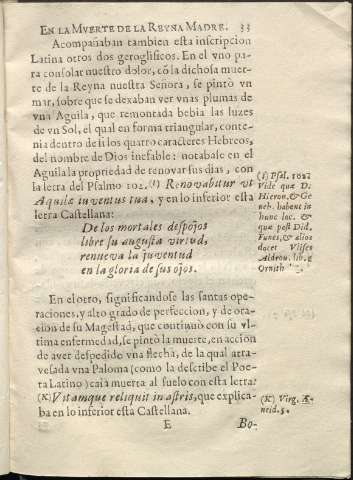 EN LA MVERTE DE LA REYNA MADRE. 33
Acompañaban tambien esta inscripcion
Latina otros dos geroglificos. En el vno pa-
ra consolar nuestro dolor, cõ la dichosa muer-
te de la Reyna nuestra Señora, se pintò vn
mar, sobre que se dexaban ver vnas plumas de
vna Aguila, que remontada bebia las luzes
de vn Sol, el qual en forma triangular, conte-
nia dentro de si los quatro caracteres Hebreos,
del nombre de Dios inefable: notabale en el
Aguila la propriedad de renovar sus dias, con
la letra del Psalmo 102. (I) Renovabitur vt
Aquilæ iuventus tua, y en lo inferior esta
letra Castellana:
De los mortales despojos
libre su augusta virtud,
renueva la juventud
en la gloria de sus ojos.
En el otro, significandose las santas ope-
raciones, y alto grado de perfeccion, y de ora-
cion de su Magestad, que continuò con su vl-
tima enfermedad, se pintò la muerte, en accion
de aver despedido vna flecha, de la qual atra-
vesada vna Paloma (como la describe el Poe-
ta Latino) caia muerta al suelo con esta letra:
(K) Vitamque reliquit in astris, que explica-
ba en lo inferior esta Castellana.
E Bo-
(I) Psal. 102.
Vide quæ D.
Hieron. & Ge
neb. habent in
hunc loc. &
quæ post Did.
Funes, & alios
docet Vlises
Aldrou. lib. 1
Ornith
(K) Virg. Æ-
neid. 5.